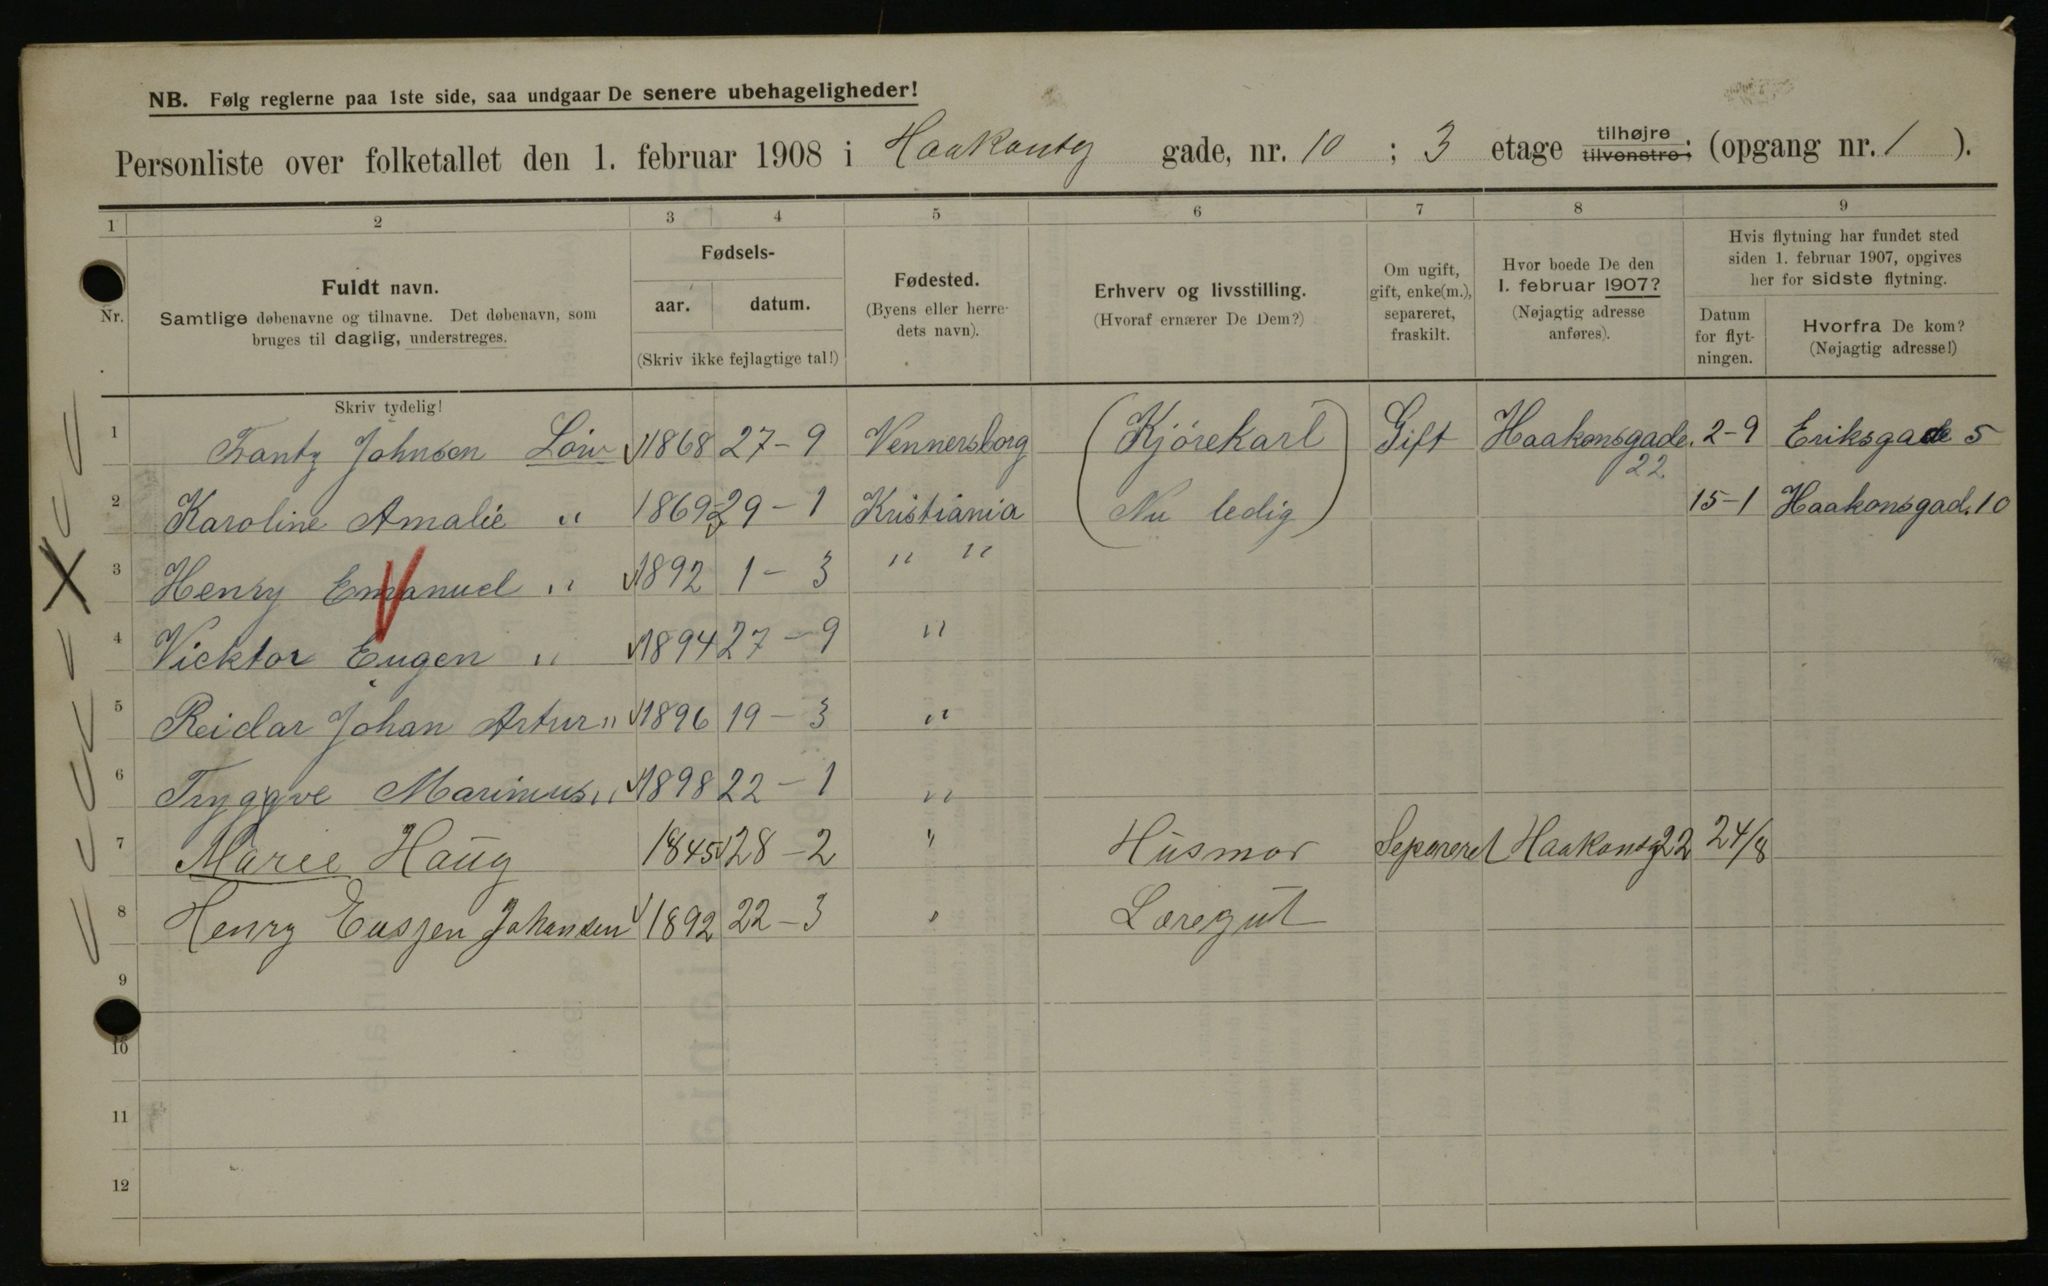 NB. Følg reglerne paa 1ste side, saa undgaar De senere ubehageligheder!
Personliste over folketallet den 1. februar 1908 i Haakonsg gade, nr. 10 ; 3 etage tilhøjre tilvenstre; (opgang nr. 1 ).
1 2 3 4 5 6 7 8 9
Nr.
Fuldt navn.
Samtlige døbenavne og tilnavne. Det døbenavn, som
bruges til daglig, understreges.
Fødsels-
aar. datum.
(Skriv ikke fejlagtige tal!)
Fødested.
(Byens eller herre-
dets navn).
Erhverv og livsstilling.
(Hvoraf ernærer De Dem?)
Om ugift,
gift, enke(m.),
separeret,
fraskilt.
Hvor boede De den
1. februar 1907?
(Nøjagtig adresse
anføres).
Hvis flytning har fundet sted
siden 1. februar 1907, opgives
her for sidste flytning.
Datum
for flyt-
ningen.
Hvorfra De kom?
(Nøjagtig adresse!)
Skriv tydelig!
1 Frantz Johnsen Löw 1868 27-9 Vennersborg (Kjørekarl Gift Haakonsgade. 22 2-9 Eriksgade 5
2 Karoline Amalie " 1869 29-1 Kristiania Nu ledig) 15-1 Haakonsgad. 10
3 Henry Emanuel " 1892 1-3 " "
4 Vicktor Eugen " 1894 27-9 "
5 Reidar Johan Artur " 1896 19-3 "
6 Tryggve Marinius " 1898 22-1 "
7 Maree Haug 1845 28-2 " Husmor Separeret Haakonsg 22 24/8
8 Henry Eusjen Johansen 1892 22-3 " Læregut
9
10
11
12